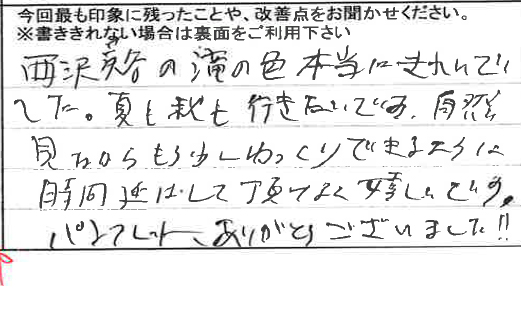 今回最も印象に残ったことや、改善点をお聞かせください。
※書ききれない場合は裏面をご利用下さい
西沢渓谷の滝の色本当にきれいで
した。夏も秋も行きたいです。自然
見ながらもう少しゆっくりできるように
時間延ばして頂くと嬉しいです。
パンフレット、ありがとうございました!!